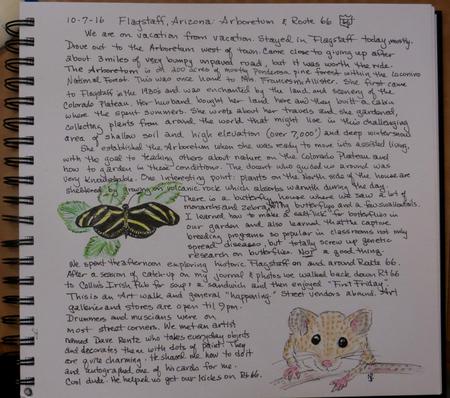 10-7-16 Flagstaff, Arizona: Arboretum & Route 66
We are on vacation from vacation. Stayed in Flagstaff today mostly.
Drove out to the Arboretum west of town. Came close to giving up after
about 3 miles of very bumpy unpaved road, but it was worth the ride.
The Arboretum is all 200 acres of mostly Ponderosa pine forest within the Coconino
National Forest. This was once home to Mrs. Frances McAllister. She first came
to Flagstaff in the 1930's and was enchanted by the land and scenery of the
Colorado Plateau. Her husband bought her land here and they built a cabin
where they spent summers. She wrote about her travels and she gardened,
collecting plants from around the world that might live in this challenging
area of shallow soil and high elevation (over 7,000') and deep winter snow.
She established the Arboretum when she was ready to move into assisted living
with the goal to teaching others about nature on the Colorado Plateau and
how to garden in these conditions. The docent who guided us around was
very knowledgable. One interesting point: plants on the North side of the house are
sheltered by growing on volcanic rock which absorbs warmth during the day.
There is a butterfly house where we saw a lot of
monarchs and zebra longwing butterflies and a few swallowtails.
I learned how to make a "salt lick" for butterflies in
our garden and also learned that the captive
breeding programs so popular in classrooms not only
spread diseases, but totally screw up genetic
research on butterflies. Not a good thing.
We spent the afternoon exploring historic Flagstaff on and around Route 66.
After a session of catch-up on my journal & photos we walked back down Rt 66
to Collins Irish Pub for soup & a sandwich and then enjoyed "First Friday."
This is an Art walk and general "happening". Street vendors abound. Art
galleries and stores are open til 9pm.
Drummers and musicians were on
most street corners. We met an artist
named Dave Rentz who takes everyday objects
and decorates them with dots of paint. They
are quite charming. He showed me how to do it
and autographed one of his cards for me.
Cool dude. He helped us get our kicks on Rt 66.